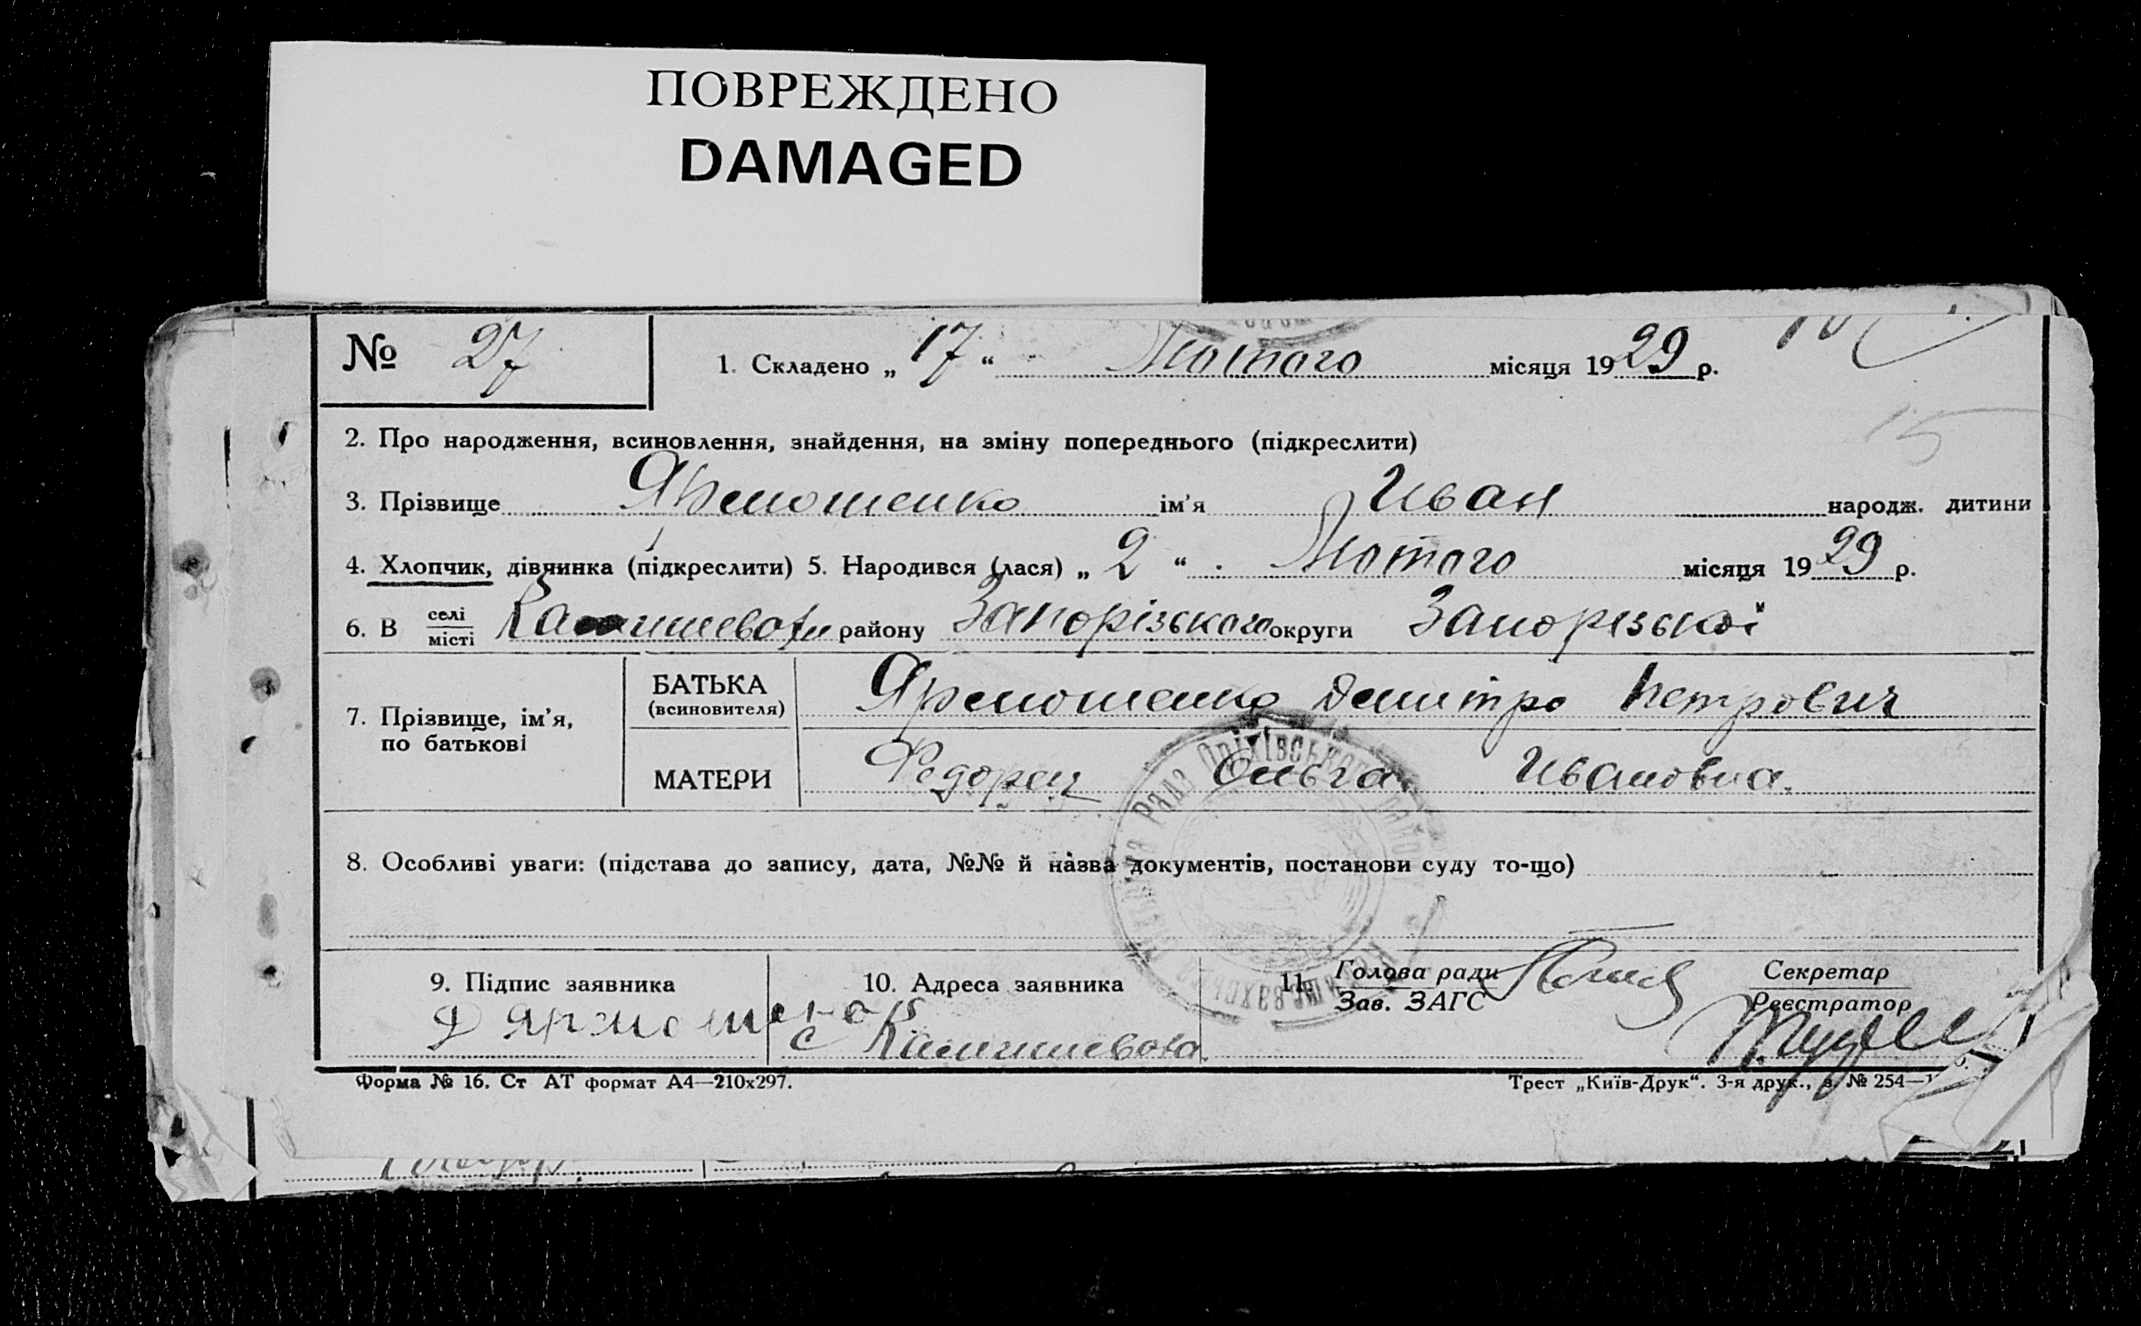 ПОВРЕЖДЕНО
DAMAGED
№ 27
1. Складено „ 17 “ Лютого місяця 1929 р.
15
2. Про народження, всиновлення, знайдення, на зміну попереднього (підкреслити)
3. Прізвище Ярмошенко ім’я Иван народж. дитини
4. Хлопчик, дівчинка (підкреслити) 5. Народився (лася) „ 2 “ Лютого місяця 1929 р.
6. В селі місті району Запорізського округи Запорізькой
7. Прізвище, ім’я, по батькові
БАТЬКА (всиновителя) Ярмошенко Демитро Петрович
МАТЕРИ Федорец Ольга Ивановна.
8. Особливі уваги: (підстава до запису, дата, №№ й назва документів, постанови суду то-що)
9. Підпис заявника 10. Адреса заявника 11. Голова ради Зав. ЗАГС Секретар Реєстратор
Д Ярмошенко с Камишеваха
Форма № 16. Ст АТ формат А4—210х297. Трест „Київ-Друк“. 3-я друк., з. № 254—